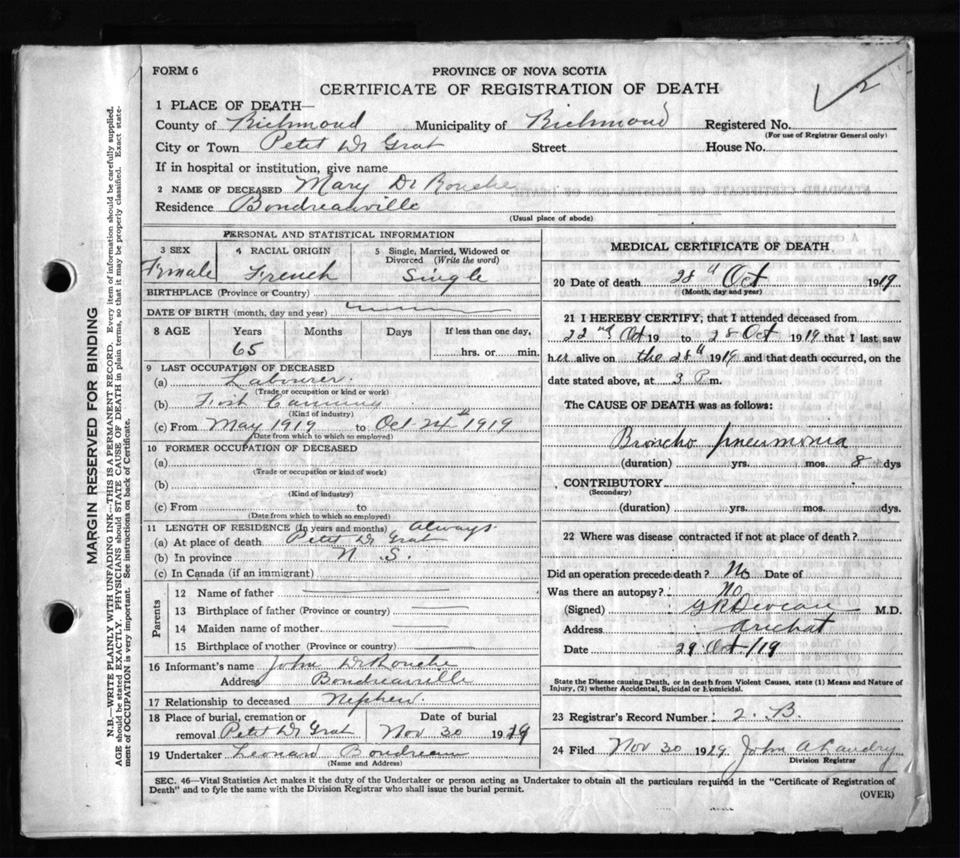 FORM 6
PROVINCE OF NOVA SCOTIA
CERTIFICATE OF REGISTRATION OF DEATH
1 PLACE OF DEATH—
County of Richmond Municipality of Richmond Registered No.
(For use of Registrar General only)
City or Town Petit De Grat Street House No.
If in hospital or institution, give name
2 NAME OF DECEASED Mary De Rouche
Residence Boudreauville
(Usual place of abode)
PERSONAL AND STATISTICAL INFORMATION
3 SEX 4 RACIAL ORIGIN 5 Single, Married, Widowed or Divorced (Write the word)
Female French Single
BIRTHPLACE (Province or Country)
DATE OF BIRTH (month, day and year)
8 AGE Years Months Days If less than one day,
65 hrs. or min.
9 LAST OCCUPATION OF DECEASED
(a) Labourer
(Trade or occupation or kind or work)
(b) Fish Canning
(Kind of industry)
(c) From May 1919 to Oct 24th 1919
(Date from which to which so employed)
10 FORMER OCCUPATION OF DECEASED
(a)
(Trade or occupation or kind of work)
(b)
(Kind of industry)
(c) From to
(Date from which to which so employed)
11 LENGTH OF RESIDENCE (In years and months) always
(a) At place of death Petit De Grat
(b) In province N. S.
(c) In Canada (if an immigrant)
Parents
12 Name of father
13 Birthplace of father (Province or country)
14 Maiden name of mother
15 Birthplace of mother (Province or country)
16 Informant's name John DeRouche
Address Boudreauville
17 Relationship to deceased Nephew.
18 Place of burial, cremation or removal Petit De Grat Date of burial Nov 30 1919
19 Undertaker Leonard Boudreau
(Name and Address)
MEDICAL CERTIFICATE OF DEATH
20 Date of death 28th Oct 1919
(Month, day and year)
21 I HEREBY CERTIFY, that I attended deceased from
22nd Oct 19 to 28 Oct 1919 that I last saw
her alive on the 28th 1919 and that death occurred, on the
date stated above, at 3 P m.
The CAUSE OF DEATH was as follows:
Broncho pneumonia
(duration) yrs. mos. 8 dys
CONTRIBUTORY
(Secondary)
(duration) yrs. mos. dys.
22 Where was disease contracted if not at place of death?
Did an operation precede death? No Date of
Was there an autopsy? No
(Signed) M.D.
Address Arichat
Date 29 Oct/19
State the Disease causing Death, or in death from Violent Causes, state (1) Means and Nature of
Injury, (2) whether Accidental, Suicidal or Homicidal.
23 Registrar's Record Number 2. B.
24 Filed Nov 30 1919 John A Landry
Division Registrar
SEC. 46—Vital Statistics Act makes it the duty of the Undertaker or person acting as Undertaker to obtain all the particulars required in the "Certificate of Registration of
Death" and to fyle the same with the Division Registrar who shall issue the burial permit.
(OVER)
MARGIN RESERVED FOR BINDING
N.B.—WRITE PLAINLY WITH UNFADING INK—THIS IS A PERMANENT RECORD. Every item of information should be carefully supplied.
AGE should be stated EXACTLY. PHYSICIANS should STATE CAUSE OF DEATH in plain terms, so that it may be properly classified. Exact state-
ment of OCCUPATION is very important. See instructions on back of Certificate.